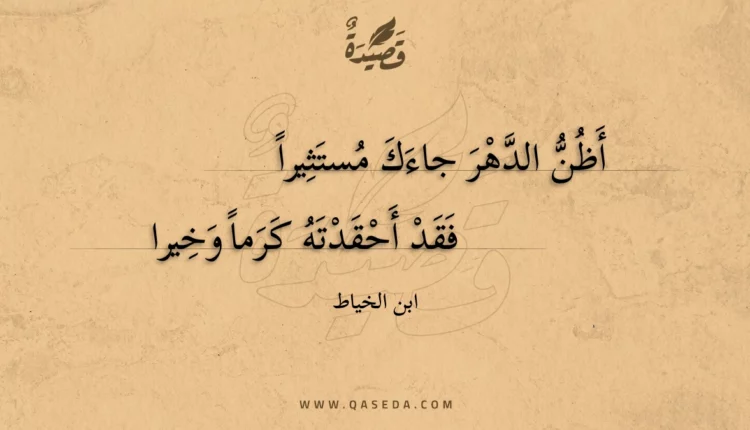 قَصِيْدَةٌ
أَظُنُّ الدَّهْرَ جاءَكَ مُستَثِيراً
فَقَدْ أَحْقَدْتَهُ كَرَماً وَخِيرا
ابن الخياط
WWW.QASEDA.COM